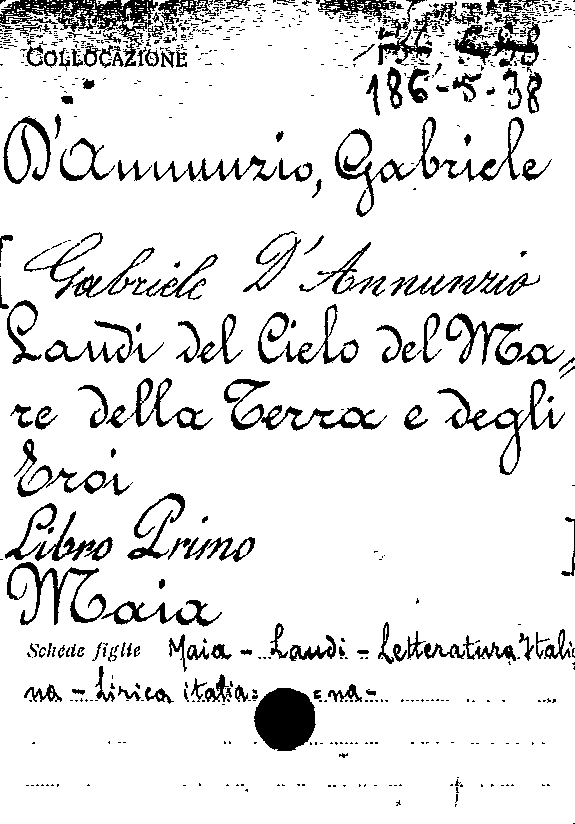 COLLOCAZIONE
186-5-38
D'Annunzio, Gabriele
[Gabriele D'Annunzio
Laudi del Cielo del Ma=
re della Terra e degli
Eroi
Libro Primo ]
Maia
Schede figlie Maia - Laudi - Letteratura Itali
na - Lirica italia= =na-